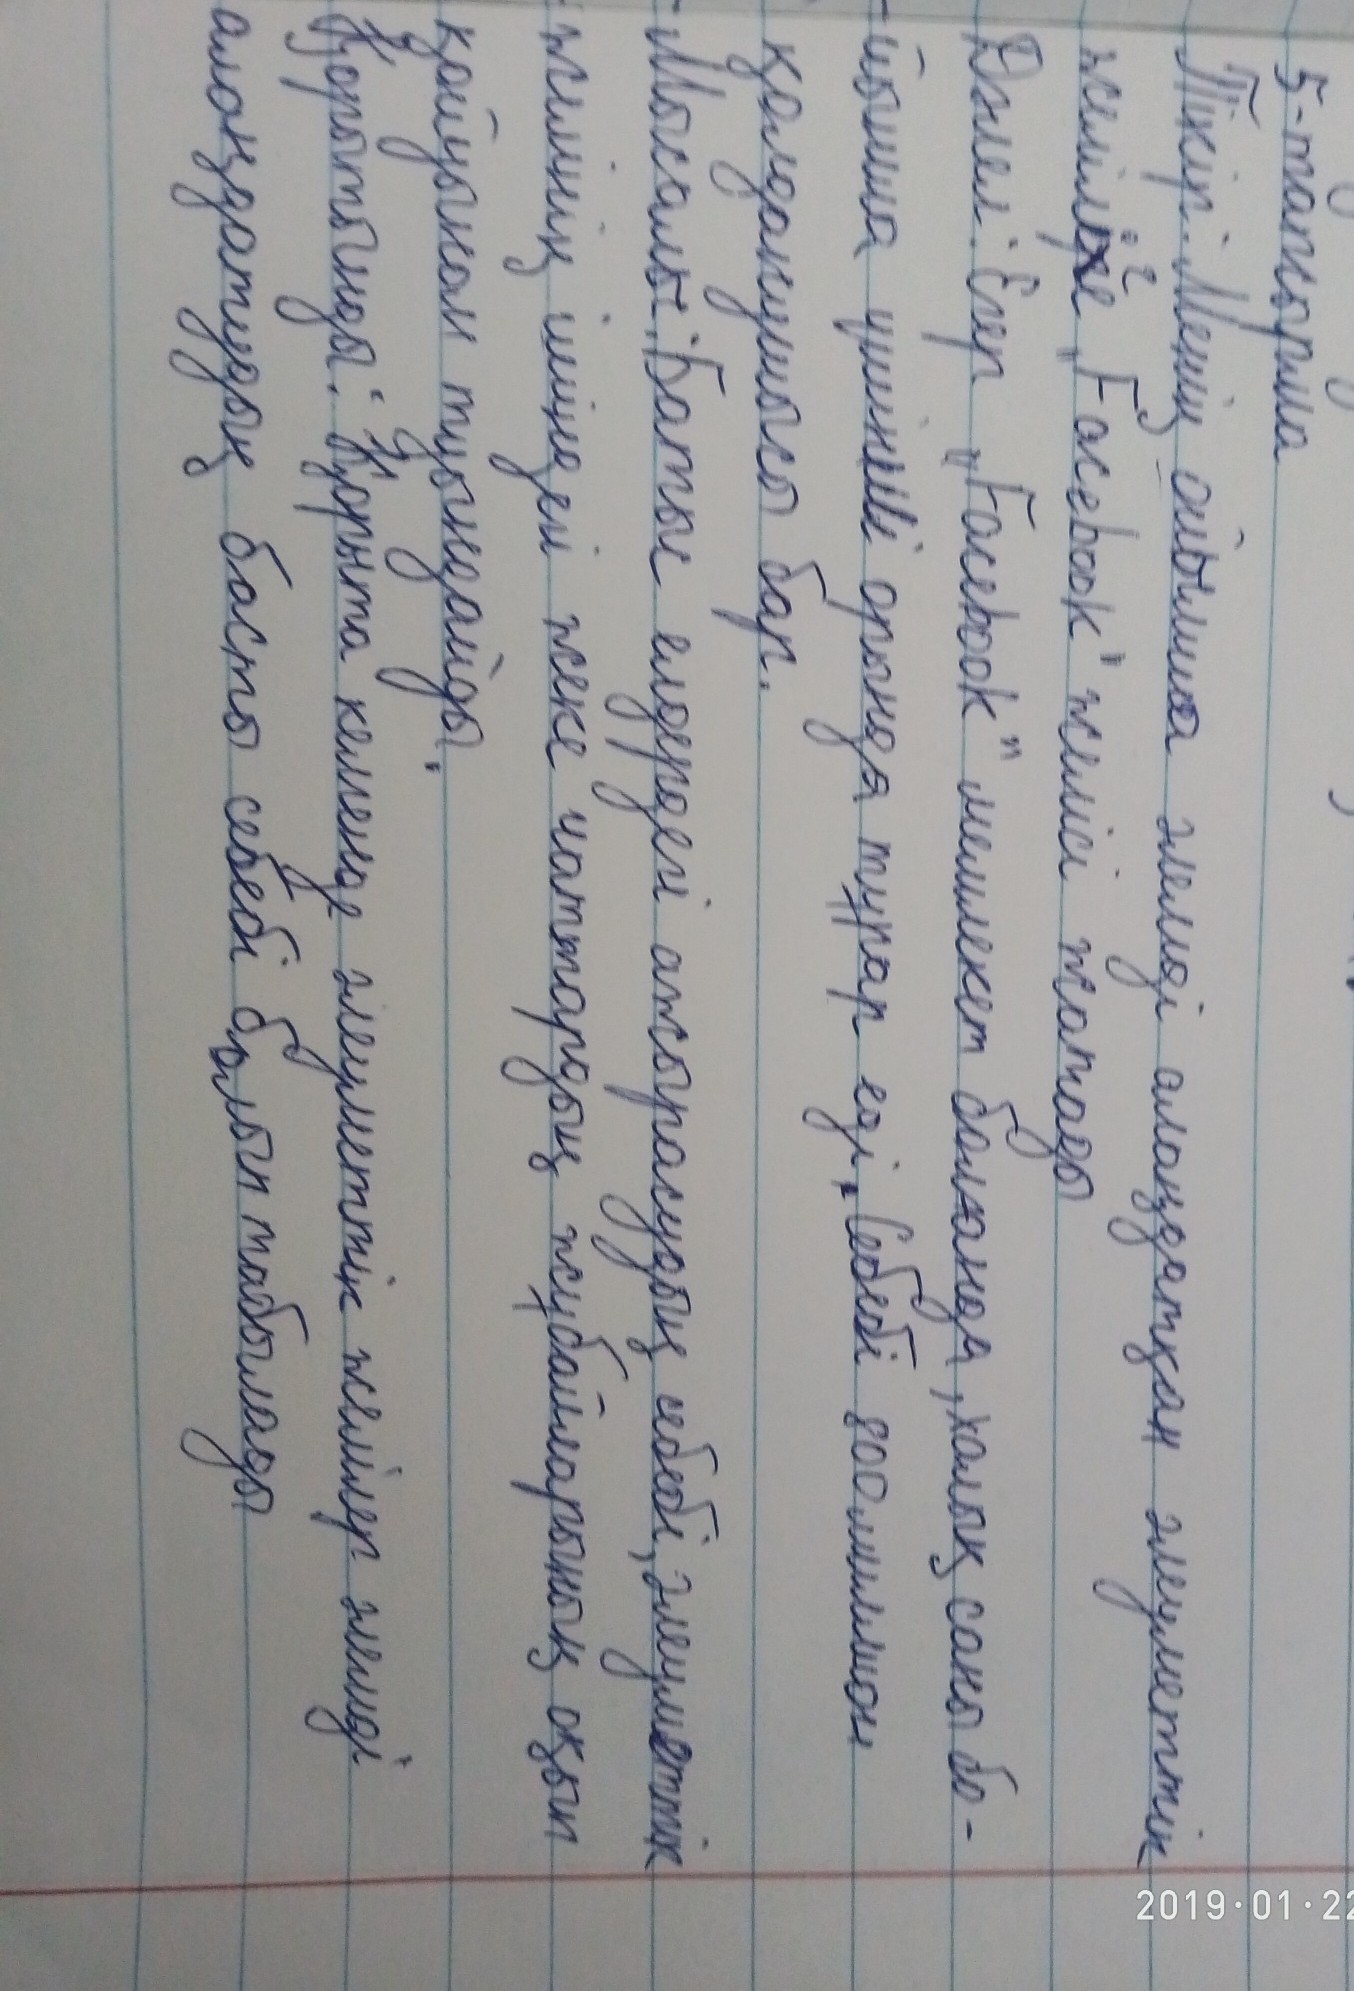 5-тапсырма
Пікір. Менің ойымша әлемді алаңдатқан әлеуметтік
желілге „Facebook" желісі жатады
Дәлел: Егер „Facebook" мемлекет болғанда, халық саны бо-
-йынша үшінші орында тұрар еді, Себебі 800 миллион
қолданушысы бар.
-Мысалы: „Батыс елдердегі ажырасудың себебі, әлеуметтік
желінің ішіндегі жеке чаттардың жұбайларының оқып
қойуынан туындайды"
Қорытынды: „Қорыта келгенде әлеуметтік желілер әлемді"
алаңдатудың басты себебі болып табылады
2019·01·22